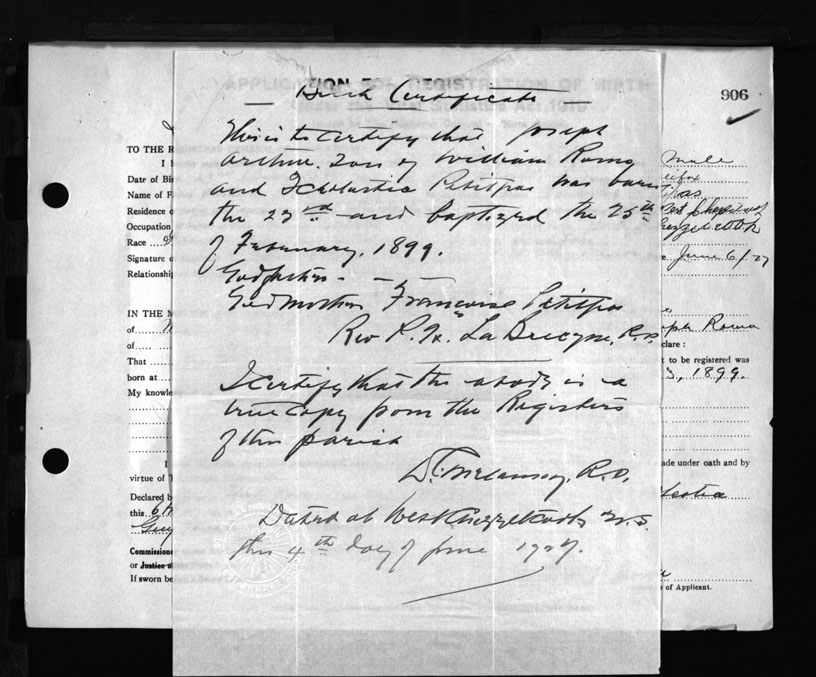 APPLICATION FOR REGISTRATION OF BIRTH
906
Birth Certificate
This is to certify that Joseph
Arthur. Son of William Roma
and Scholastic Petitpas was born
the 23rd and baptized the 25th
of February, 1899.
Godfather - —
Godmother Francoise Petitpas
Rev R. 
I certify that the above is a
true copy from the Registers
of this parish
D. Melanson, R.P.
Dated at West Chezzetcook N.S.
this 4th day of June 1927.
TO THE R
I
Date of Bir
Name of F
Residence o
Occupation
Race
Signature o
Relationship
IN THE M
of
of
That
born at
My knowle
I
virtue of
Declared b
this 6th
Commissione
or Justice o
If sworn be
Male
June 6/27
Joseph Roma
declare :
t to be registered was
3, 1899.
ade under oath and by
of Applicant.